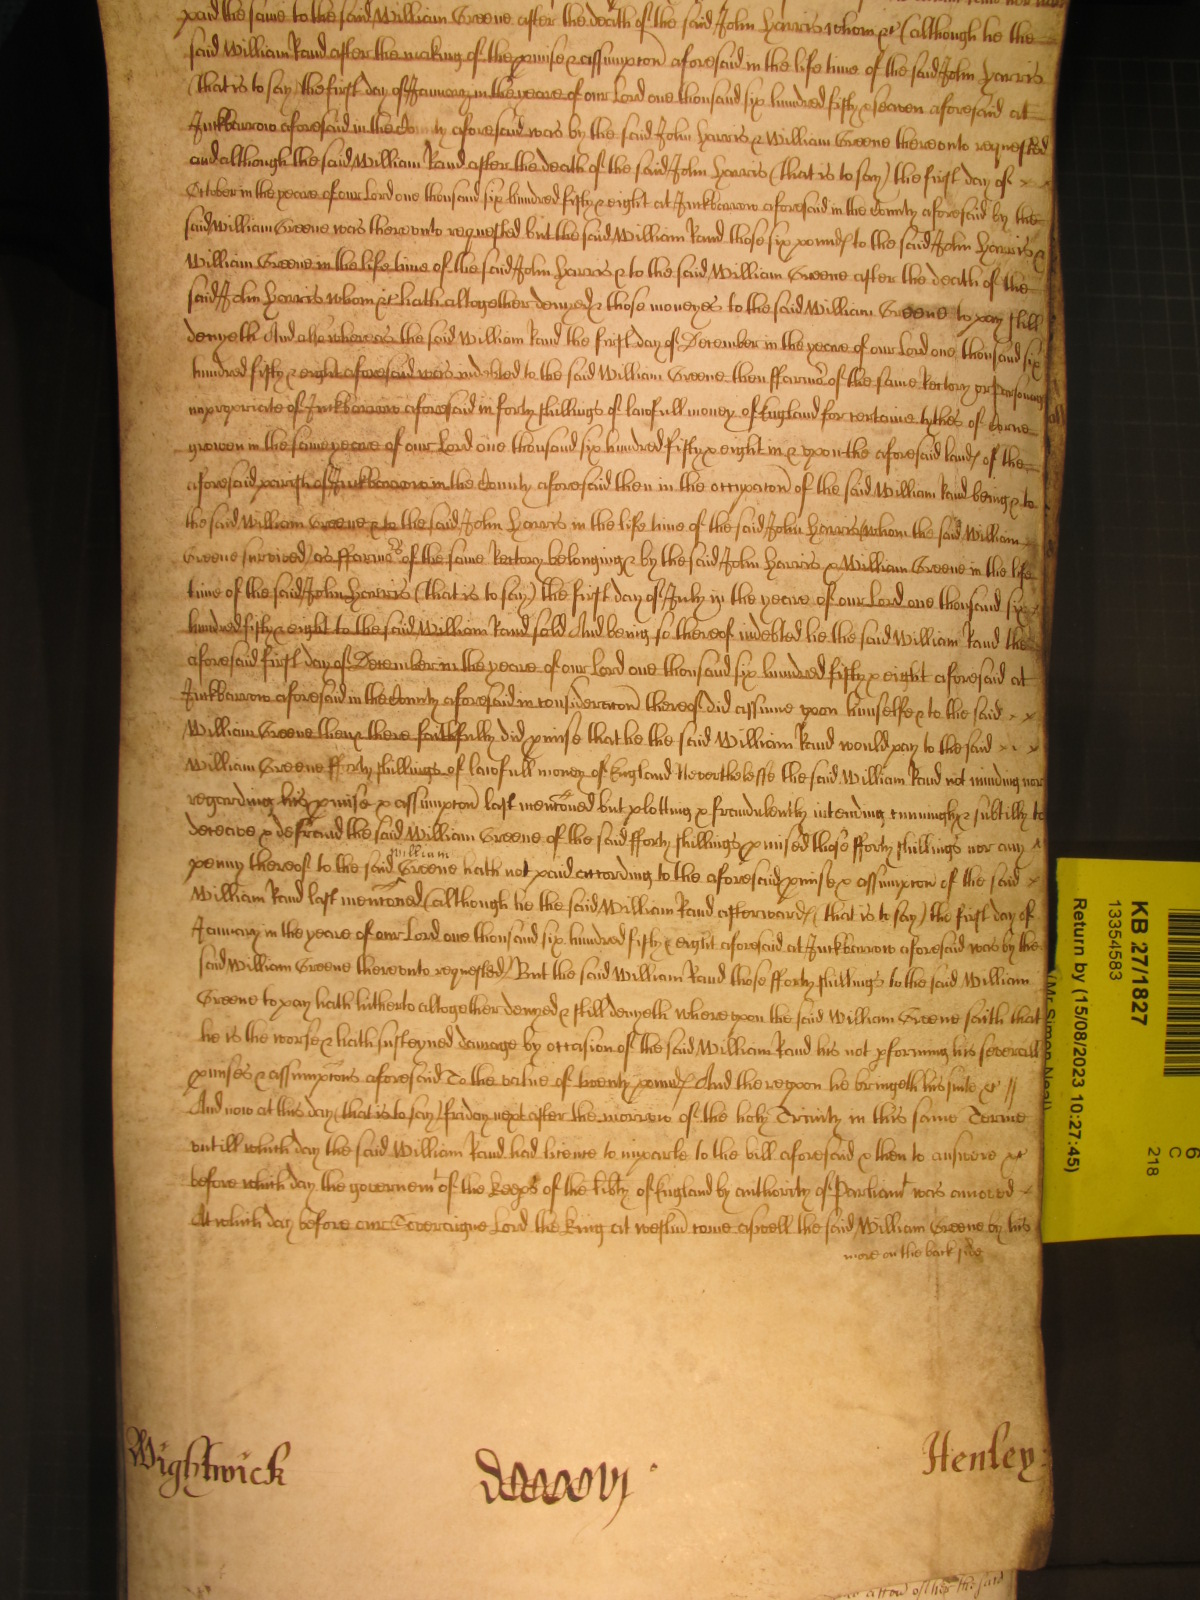 paid the same to the said William Greene after the death of the said John Harris whom &c (although he the
said William Rand after the making of the pmise & assumpcon aforesaid in the life time of the said John Harris
(that is to say) the first day of January in the yeare of our Lord one thousand six hundred fifty & seaven aforesaid at
Inckbarrow aforesaid in the County aforesaid was by the said John Harris & William Greene thereonto requested
and although the said William Rand after the death of the said John Harris (that is to say) the first day of
October in the yeare of our Lord one thousand six hundred fifty & eight at Inckbarrow aforesaid in the County aforesaid by the
said William Greene was thereonto requested but the said William Rand those six pounds to the said John Harris &
William Greene in the life time of the said John Harris & to the said William Greene after the death of the
said John Harris whom &c hath altogether denyed & those moneyes to the said William Greene to pay still
denyeth And also whereas the said William Rand the first day of December in the yeare of our Lord one thousand six
hundred fifty & eight aforesaid was indebted to the said William Greene then ffarmor of the same Rectory or parsonage
impropriate of Inckbarrow aforesaid in forty shillings of lawfull money of England for certaine tythes of Corne
growen in the same yeare of our Lord one thousand six hundred fifty & eight in & upon the aforesaid lands of the
aforesaid parish of Inckbarrow in the County aforesaid then in the occupacon of the said William Rand being & to
the said William Greene & to the said John Harris in the life time of the said John Harris (whom the said William
Greene survived) as ffarmors of the same Rectory belonging & by the said John Harris & William Greene in the life
time of the said John Harris (that is to say) the first day of July in the yeare of our Lord one thousand six
hundred fifty & eight to the said William Rand sold And being so thereof indebted he the said William Rand the
aforesaid first day of December in the yeare of our Lord one thousand six hundred fifty & eight aforesaid at
Inckbarrow aforesaid in the County aforesaid in consideracon thereof did assume upon himselfe & to the said
William Greene then & there faithfully did pmise that he the said William Rand would pay to the said
William Greene fforty shillings of lawfull money of England Neverthelesse the said William Rand not minding nor
regarding his pmise & assumpcon last mencioned but plotting & fraudulently intending cunningly & subtilly to
deceave & defraud the said William Greene of the said fforty shillings pmised those fforty shillings nor any
penny thereof to the said William Greene hath not paid according to the aforesaid pmise & assumpcon of the said
William Rand last menconed (although he the said William Rand afterwards (that is to say) the first day of
January in the yeare of our Lord one thousand six hundred fifty & eight aforesaid at Inckbarrow aforesaid was by the
said William Greene thereonto requested) But the said William Rand those fforty shillings to the said William
Greene to pay hath hitherto altogether denyed & still denyeth whereupon the said William Greene saith that
he is the worse & hath susteyned damage by occasion of the said William Rand his not pforming his severall
pmises & assumpcons aforesaid To the value of twenty pounds And thereupon he bringeth his suite &c //
And now at this day (that is to say) friday next after the morrow of the holy Trinity in this same Terme
untill which day the said William Rand had licence to imparle to the bill aforesaid & then to answere &c
before which day the governemt of the keeps of the libty of England by authority of Parliamt was amoved
At which day before our Sovereigne Lord the King at westm come aswell the said William Greene by his
more on the back side
Wightwick
Henley
KB 27/1827
13354583
Return by (15/08/2023 10:27:45)
(Mr Simon Neal)
6
C
218